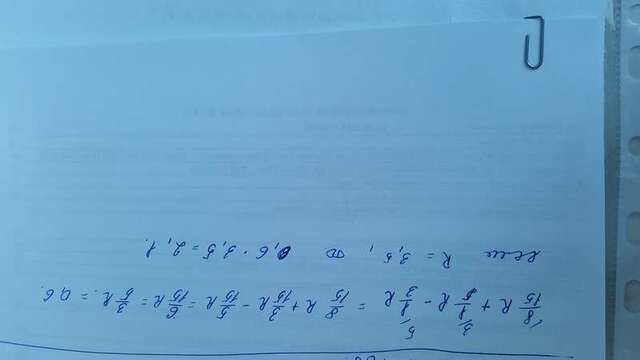 8/15 R + 1/5 R - 1/3 R = 8/15 R + 3/15 R - 5/15 R = 6/15 R = 3/5 R. = 0,6.
если R = 3,5, то 0,6 · 3,5 = 2,1.